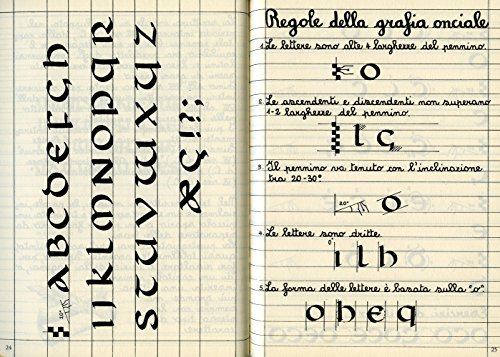 20°
ABCDEFGH
IJKLMNOPQR
STUVWXYZ
Æ&!?;
24
Regole della grafia onciale
1. Le lettere sono alte 4 larghezze del pennino.
o
2. Le ascendenti e discendenti non superano
1-2 larghezze del pennino.
l ç
3. Il pennino va tenuto con l'inclinazione
tra 20-30°.
20° o
4. Le lettere sono dritte.
0° i l h
5. La forma delle lettere è basata sulla "o".
o h e q
25